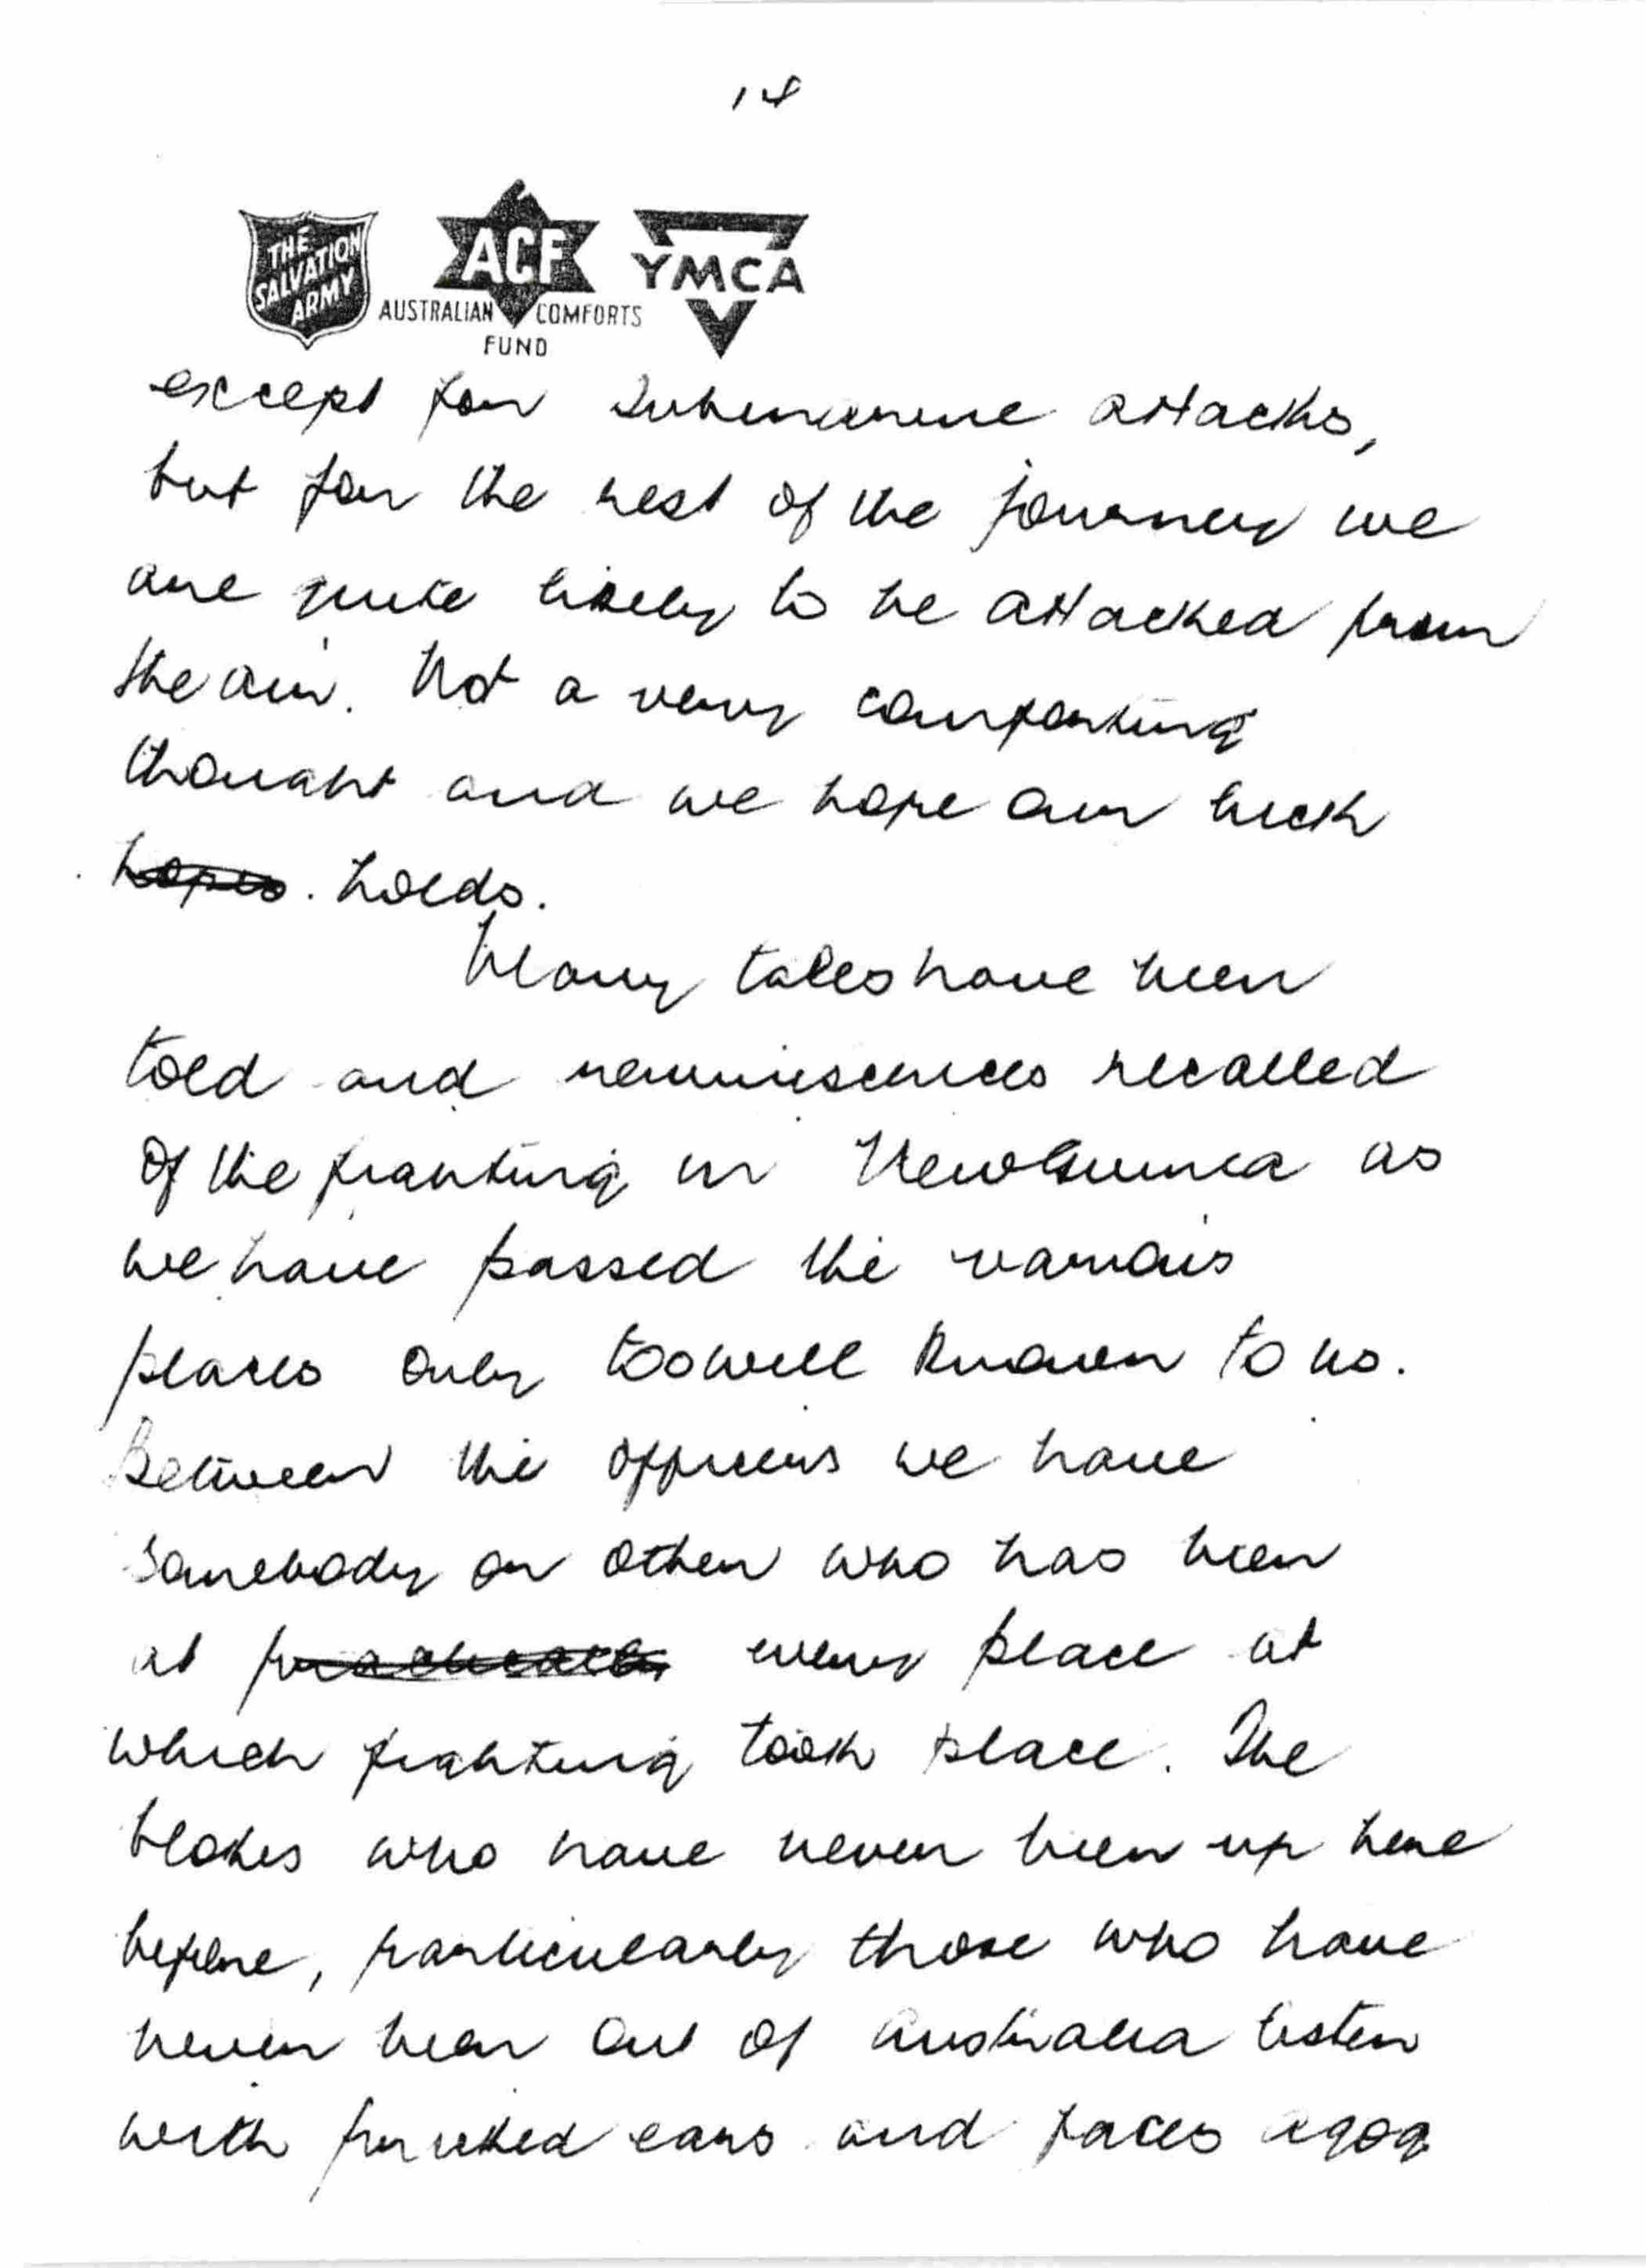 14
THE SALVATION ARMY
ACF
AUSTRALIAN COMFORTS FUND
YMCA
except for submarine attacks,
but for the rest of the journey we
are quite likely to be attacked from
the air. Not a very comforting
thought and we hope our luck
hopes. holds.
Many tales have been
told and reminiscences recalled
of the fighting in New Guinea as
we have passed the various
places only too well known to us.
Between the officers we have
somebody or other who has been
at every place at
which fighting took place. The
blokes who have never been up here
before, particularly those who have
never been out of Australia listen
with pricked ears and faces agog